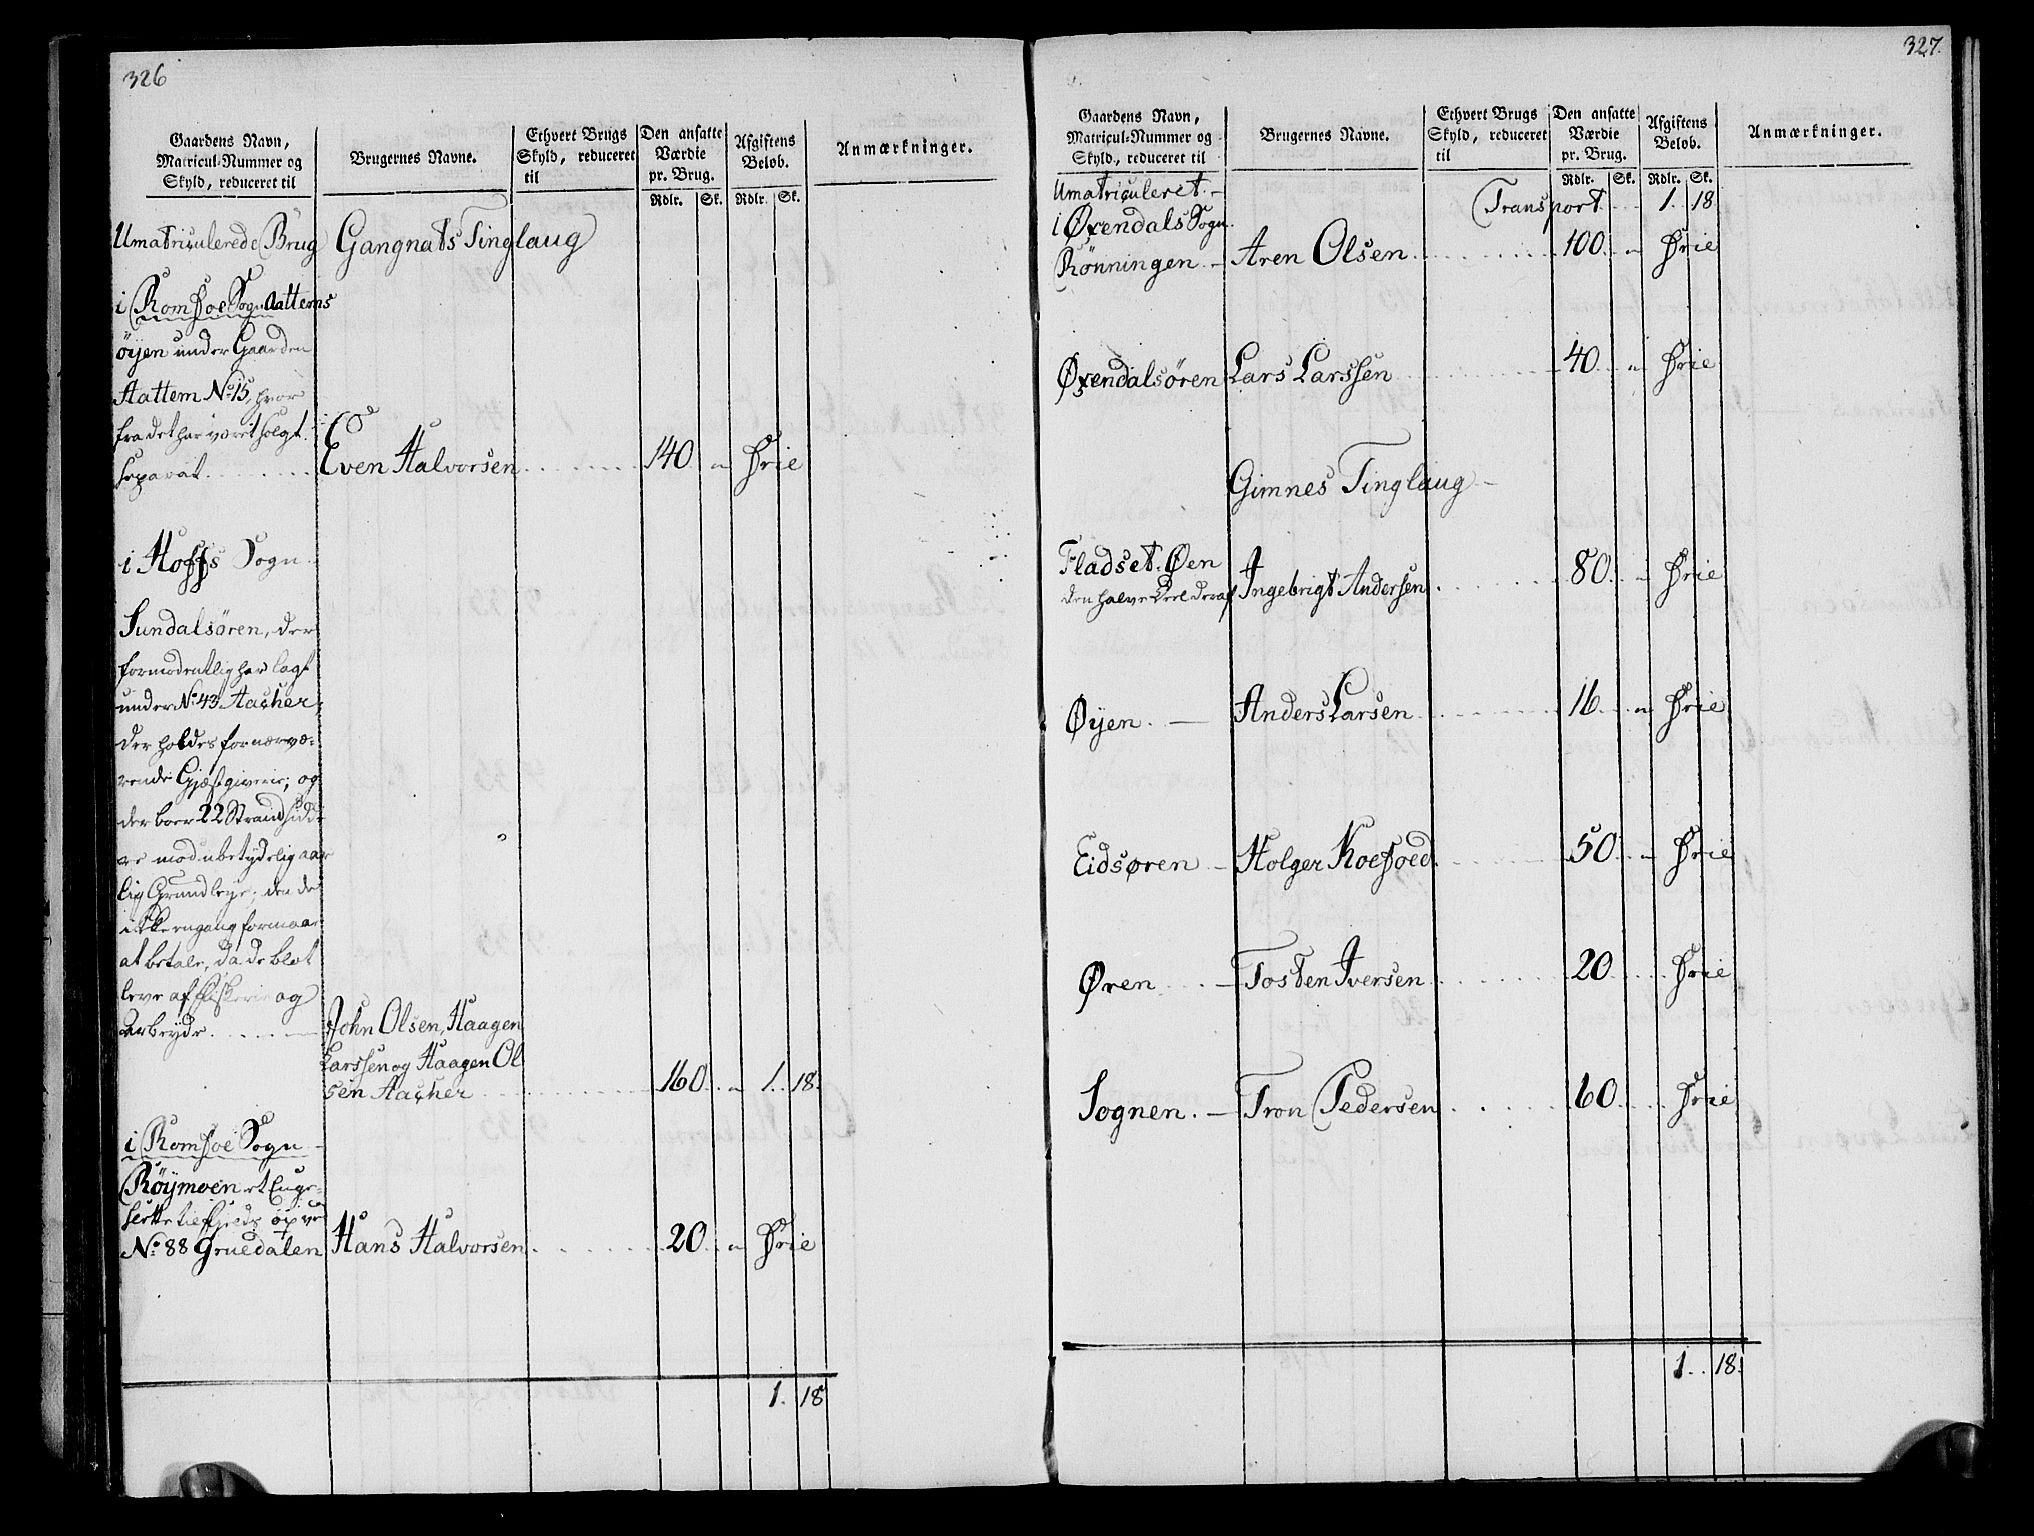 326
Gaardens Navn,
Matricul-Nummer og
Skyld, reduceret til
Brugernes Navne.
Ethvert Brugs
Skyld, reduceret
til
Den ansatte
Værdie
pr. Brug.
Rdlr. Sk.
Afgiftens
Beløb.
Rdlr. Sk.
Anmærkninger.
Umatriculerede Brug Gangnats Tinglaug
i Romsoe Sogn Aattems
öyen under Gaarden
Aattem No 15, hvor
fra det har været solgt
separat . . . . Even Halvorsen . . . . 140 . „ Frie
i Hoffs Sogn
Sundalsøren, der
formodentlig har lagt
under No 43 Aacher,
der holdes for nærvæ-
rende Gjæstgiverie; og
der boer 22 Strandsidd-
re mod ubetydelig aar
lig Grundleye, den de
ikke engang formaar
at betale, da de blot
leve af Fiskerie og
Arbeyde . . . . John Olsen, Haagen
Larssen og Haagen Ol
sen Aacher . . . . 160 . „ 1 . 18.
i Romsoe Sogn
Röymoen et Enge-
No 88 Gruedalen Hans Halvorsen . . . . 20 . „ Frie
1. 18
327.
Gaardens Navn,
Matricul-Nummer og
Skyld, reduceret til
Brugernes Navne.
Ethvert Brugs
Skyld, reduceret
til
Den ansatte
Værdie
pr. Brug.
Rdlr. Sk.
Afgiftens
Beløb.
Rdlr. Sk.
Anmærkninger.
Umatriculeret. — Transport . . . 1 . 18
i Øxendals Sogn.
Rönningen. — Aren Olsen . . . . 100 . „ Frie
Øxendalsören Lars Larssen . . . . 40 . „ Frie
Gimnes Tinglaug —
Fladset-Øen
den halve Deel deraf Ingebrigt Andersen . . . . 80 . „ Frie
Øyen. — Anders Larsen . . . . 16 . „ Frie
Eidsøren — Holger Koefoed . . . . 50 . „ Frie
Øren . . — Tosten Iversen . . . . 20 . . Frie
Sognen. — Tron Pedersen . . . . 60 . . Frie
1 . . 18.